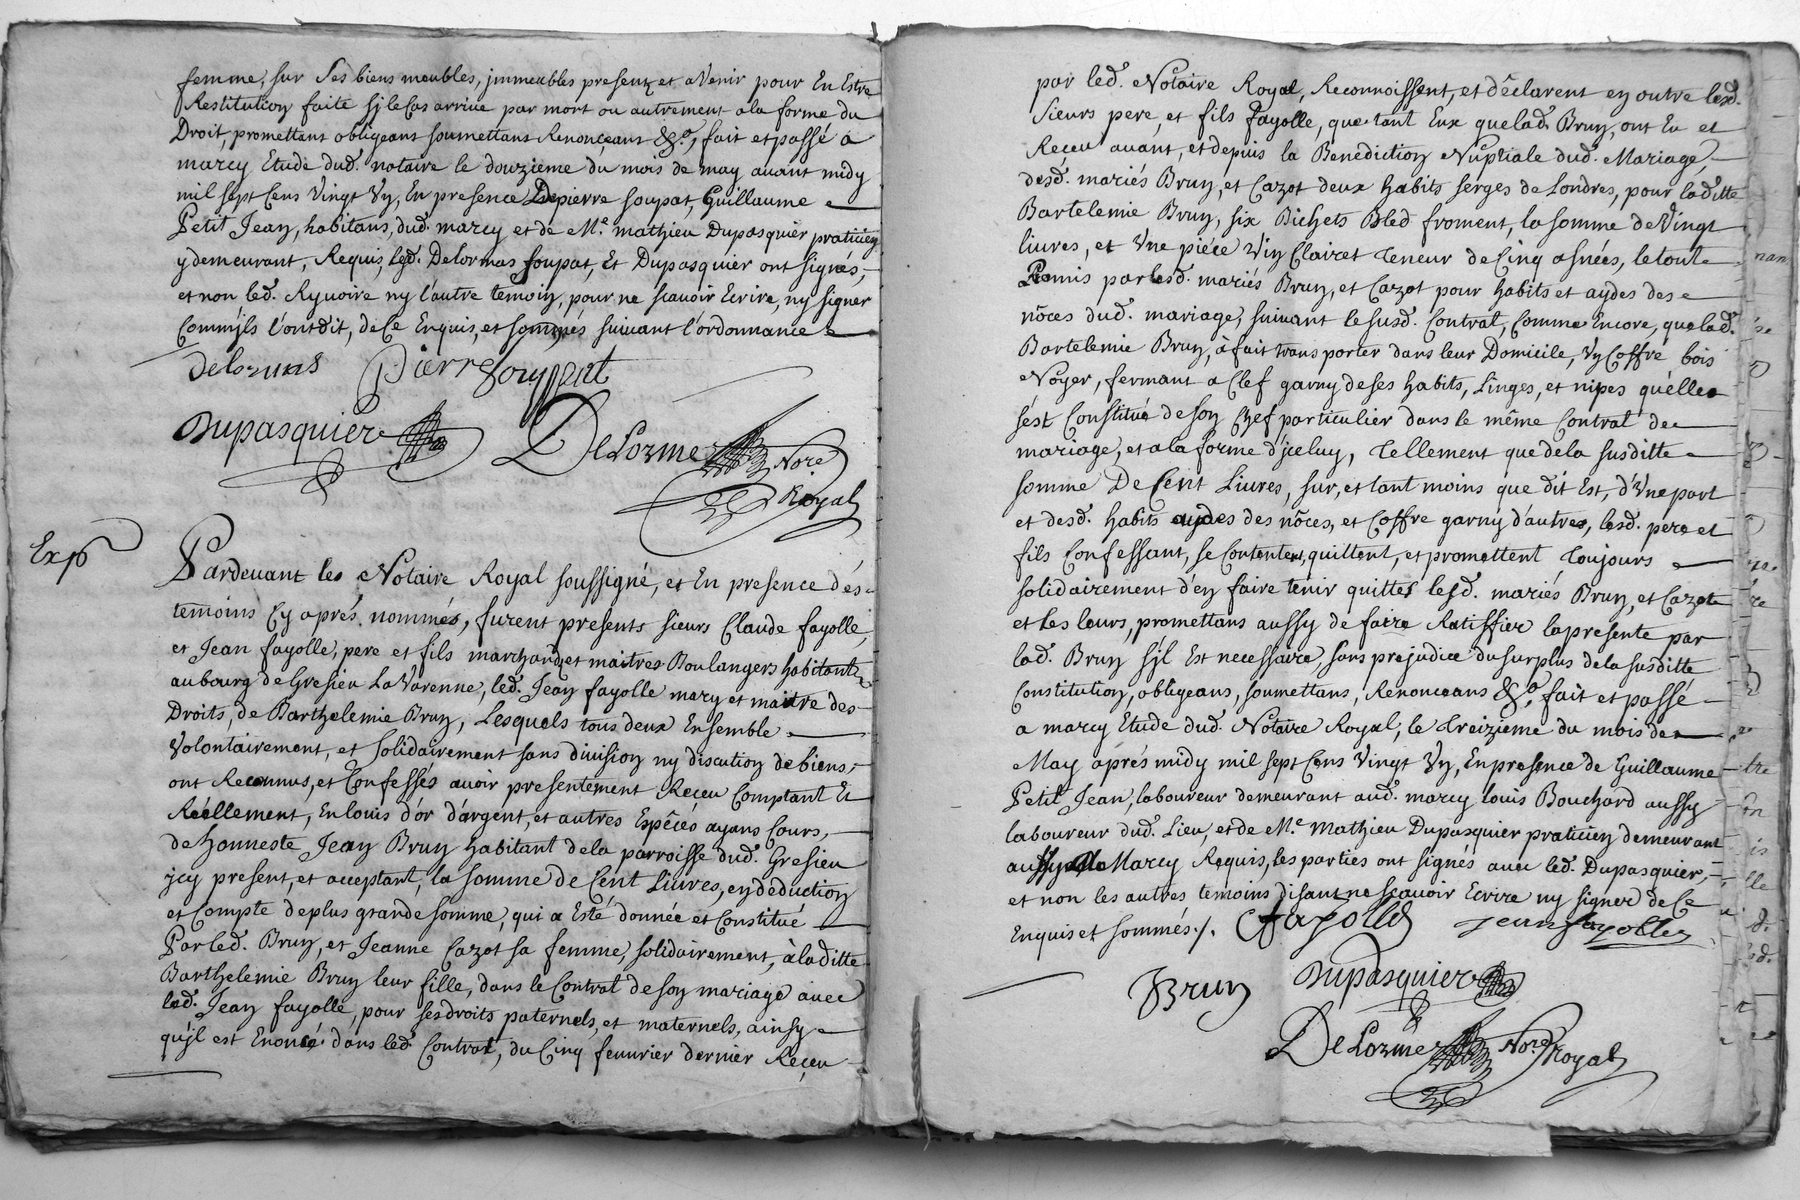 femme, sur ses biens meubles, jmmeubles presents et avenir pour En Estre
Restitution faite sj le cas arrive par mort ou autrement a la forme du
Droit, promettans obligeans soumettans Renonceans &a, fait et passé a
marcy Etude dud. notaire le douzieme du mois de may avant midy
mil sept Cens Vingt Vn, En presence De pierre soupat, Guillaume
Petit Jean, habitans, dud. marcy et de Me. mathieu Dupasquier praticien
y demeurant, Requis, led. Delormas soupat, Et Dupasquier ont signés,
et non led. Ryvoire ny l'autre temoin, pour ne scavoir Ecrire, ny signer
Comm'jls l'ont dit, de ce Enquis, et sommés suivant l'ordonnance
Delormas Pierre Souppat
Dupasquier DeLorme Nore.
Royal
Exp
Pardevant les Notaire Royal soussigné, et En presence dés
temoins Cy aprés nommés, furent presents sieurs Claude fayolle,
et Jean fayolle, pere et fils marchands et maitres Boulangers habitants
au bourg de Gresieu La Varenne, led. Jean fayolle mary et maitre des
Droits, de Barthelemie Brun, Lesquels tous deux Ensemble
Volontairement, et solidairement sans division ny discution de biens,
ont Reconnus, et Confessés avoir presentement Receu Comptant Et
Réellement, En louis d'or d'argent, et autres Espéces ayans Cours,
de honneste Jean Brun habitant de la parroisse dud. Gresieu
jcy present, et acceptant, la somme de Cent Livres, en deduction
et Compte de plus grande somme, qui a Esté donnée et Constitué
Par led. Brun, et Jeanne Cazot sa femme, solidairement, à la ditte
Barthelemie Brun leur fille, dans le Contrat de son mariage avec
led. Jean fayolle, pour ses droits paternels, et maternels, ainsy
qu'jl est Enoncé dans led. Contrat, du Cinq fevvrier dernier Reçeu
par led. Notaire Royal, Reconnoissent, et déclarent en outre lesd.
sieurs pere, et fils fayolle, que tant Eux que lad. Brun, ont Eu et
Receu avant, et depuis la Benediction Nuptiale dud. Mariage,
desd. mariés Brun, et Cazot deux habits serges de Londres, pour la ditte
Bartelemie Brun, six Bichets Bled froment, la somme de Vingt
livres, et Vne piéce Vin Clairet teneur de Cinq asnées, le tout
Promis par lesd. mariés Brun, et Cazot pour habits et aydes des
nôces dud. mariage, suivant le susd. Contrat, Comme Encore, que lad.
Bartelemie Brun, à fait transporter dans leur Domicile, Vn Coffre bois
Noyer, fermant a Clef garny de ses habits, Linges, et nipes qu'elle
s'est Constitué de son Chef particulier dans le même Contrat de
mariage, et a la forme d'jceluy, Tellement que de la susditte
somme De Cent Livres, sur, et tant moins que dit Est, d'Vne part
et desd. habits aydes des nôces, et Coffre garny d'autres, lesd. pere et
fils Confessant, se Contentent, quittent, et promettent Toujours
solidairement d'en faire tenir quittes lesd. mariés Brun, et Cazot
et Les leurs, promettans aussy de faire Ratiffier la presente par
lad. Brun s'jl Est necessaire, sans prejudice du surplus de la susditte
Constitution, obligeans, soumettans, Renonceans &a, fait et passé
a marcy Etude dud. Notaire Royal, le Treizieme du mois de
May aprés midy mil sept Cens Vingt Vn, En presence de Guillaume
Petit Jean, laboureur demeurant aud. marcy louis Bouchard aussy
laboureur dud. Lieu, et de Me. Mathieu Dupasquier praticien demeurant
aussy a Marcy Requis, les parties ont signés avec led. Dupasquier,
et non les autres temoins disant ne scavoir Ecrire ny signer de Ce
Enquis et sommés ./. Cfayolle jean fayolle
Brun Dupasquier
DeLorme Nore. Royal